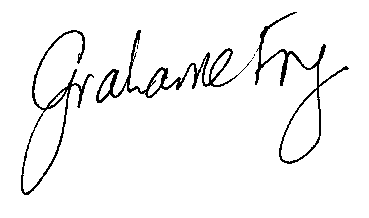 Grahame Fry